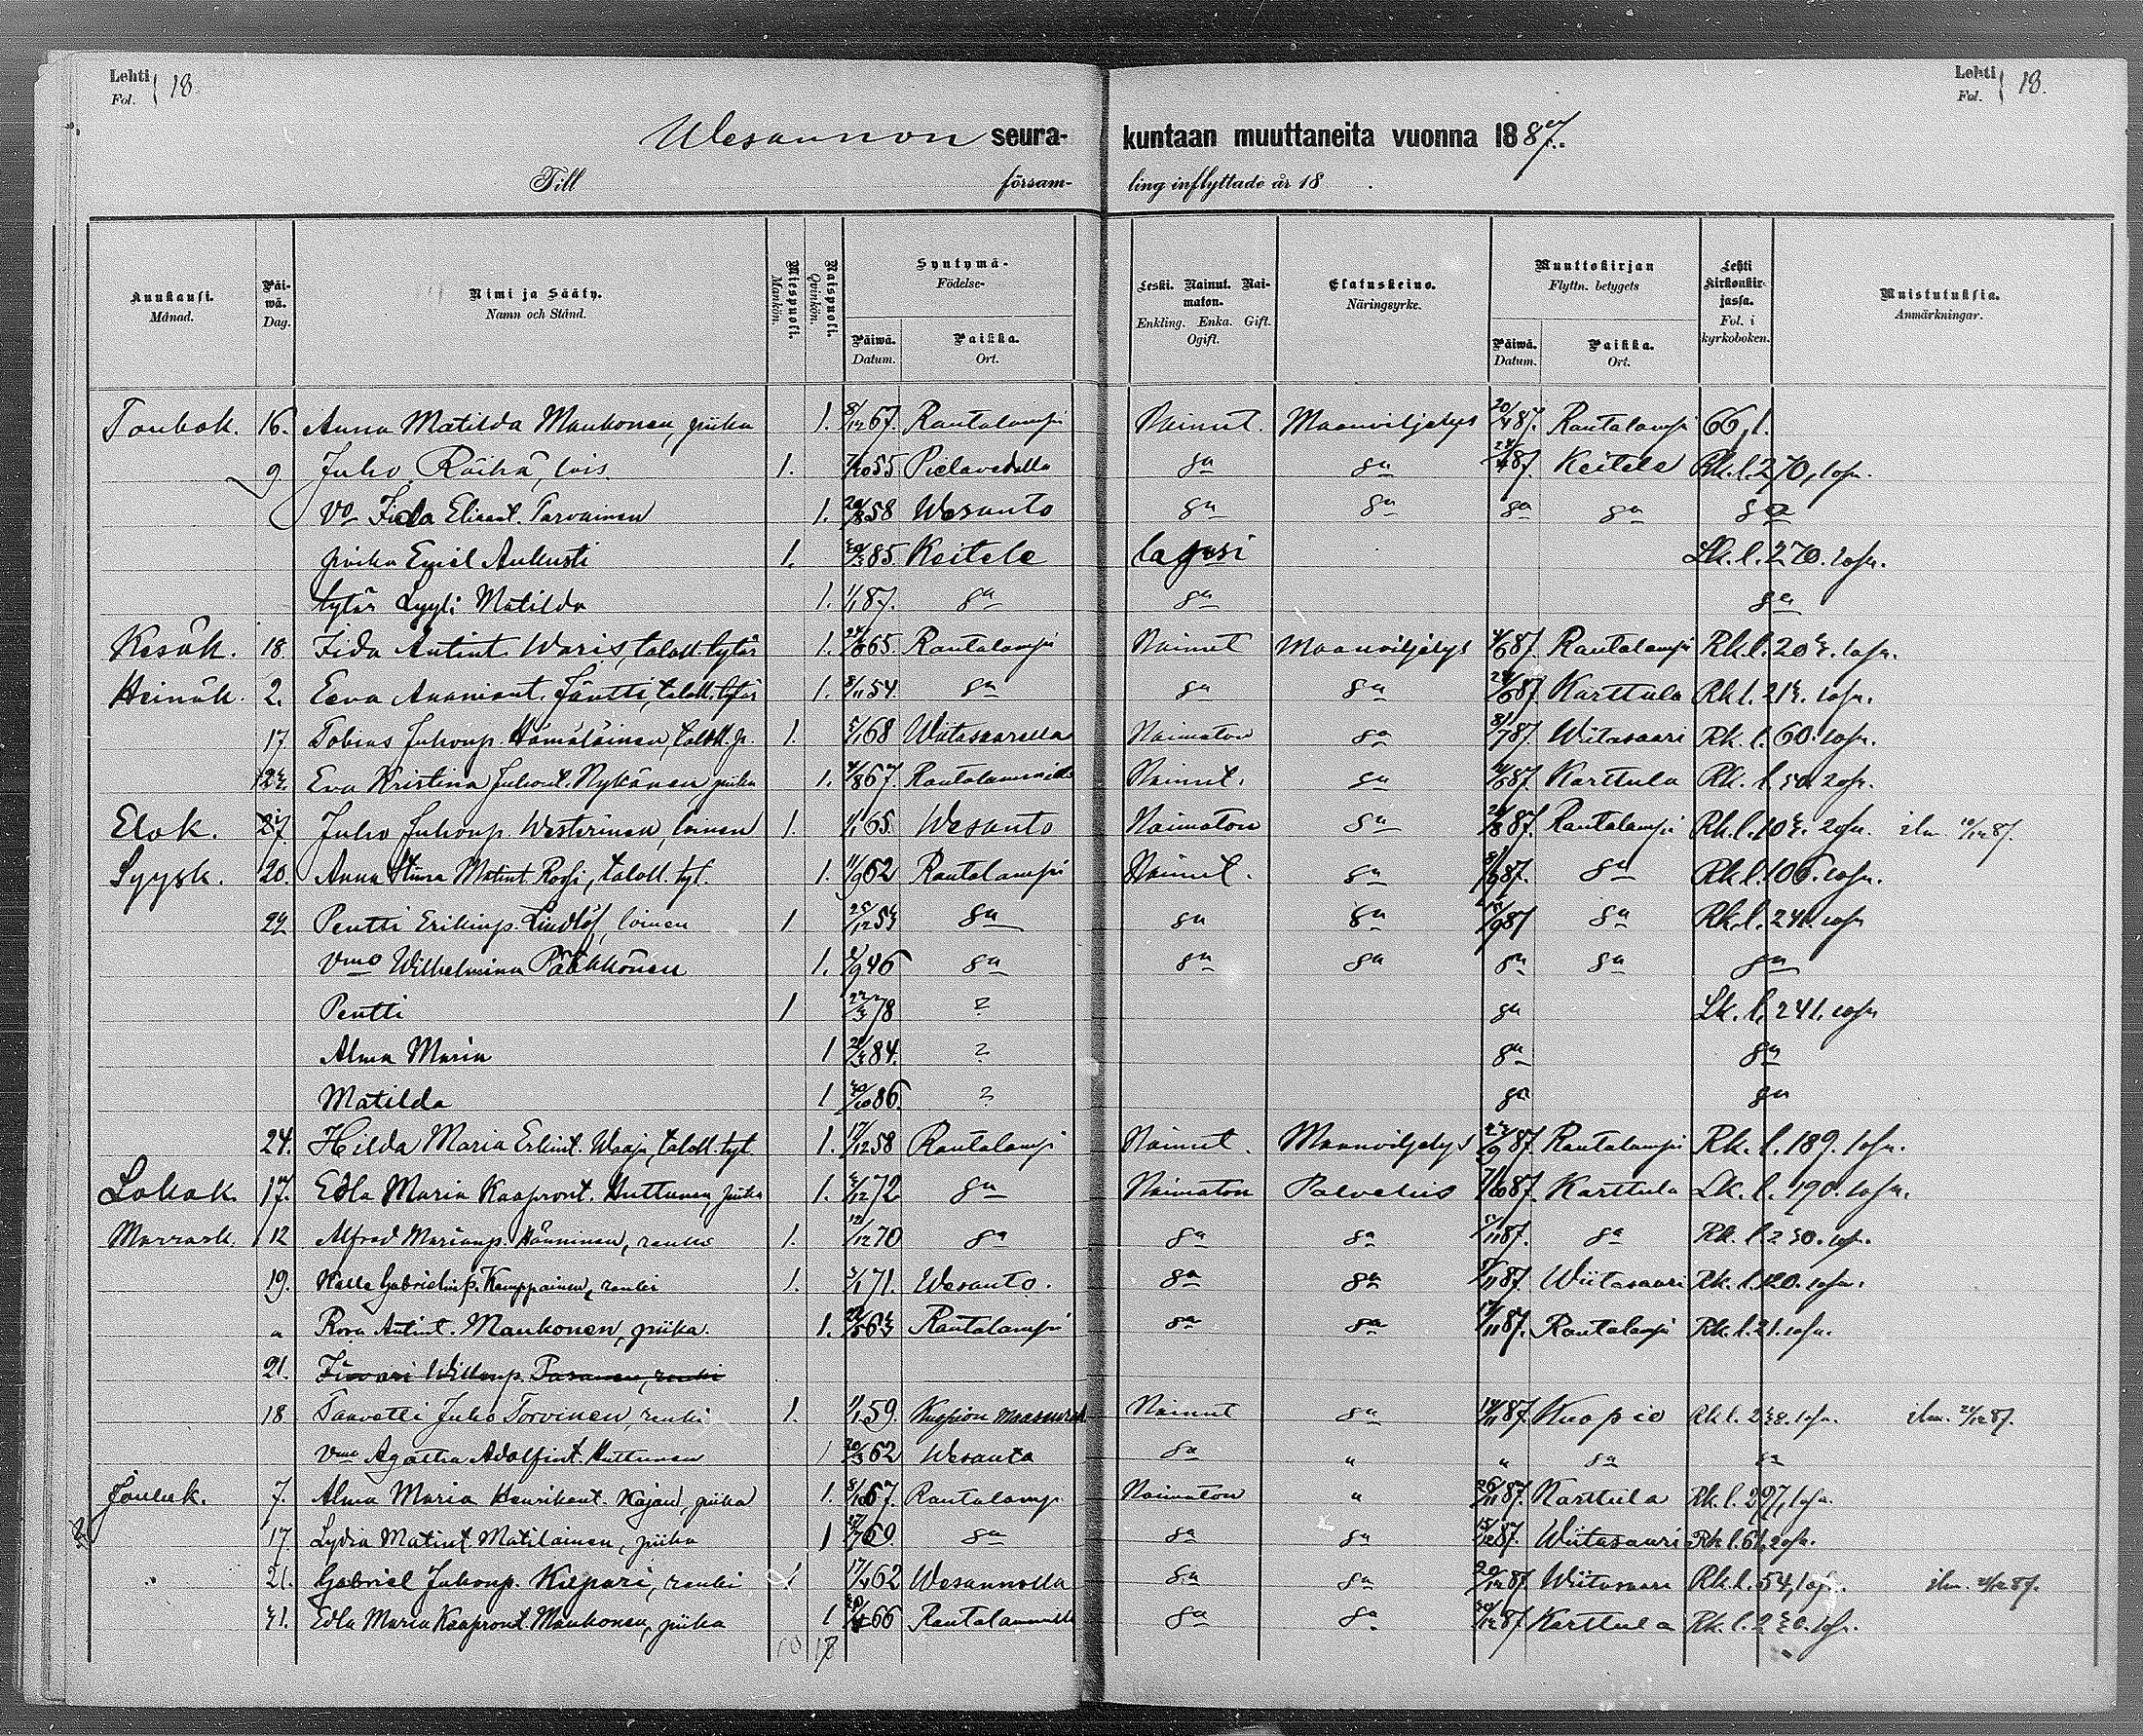 Lehti Fol. } 18
Lehti Fol. } 18.
Wesannon seura- kuntaan muuttaneita vuonna 1887.
Till försam- ling inflyttade år 18 .
Kuukausi. Månad. Päi-wä. Dag. Nimi ja Sääty. Namn och Stånd. Miespuoli. Mankön. Naispuoli. Qvinkön. Syntymä- Födelse- Päiwä. Datum. Paikka. Ort. Leski. Nainut. Nai-maton. Enkling. Enka. Gift. Ogift. Elatuskeino. Näringsyrke. Muuttokirjan Flyttn. betygets Päiwä. Datum. Paikka. Ort. Lehti Kirkonkir-jassa. Fol. i kyrkoboken. Muistutuksia. Anmärkningar.
Toukok. 16. Anna Matilda Maukonen, piika 1. 8/12 67. Rantalampi Nainut. Maanviljelys 87. Rantalampi 66,1.
9. Juho Räihä, lois. 1. 55 Pielavedella sa sa 87. Keitele Rk. l. 270, losn.
Vo Iida Elisant. Tarvainen 1. 58 Wesanto sa sa sa sa sa
poika Emil Aukusti 1. 85. Keitele lapsi Lk. l. 270. losn.
tytär Lyyli Matilda 1. 1/1 87. sa sa sa
Kesäk. 18. Iida Antint. Waris, taloll. tytär 1. 65. Rantalampi Nainut Maanviljelys 87. Rantalampi Rk. l. losn.
Heinäk. 2. Eeva Ananiant. Jäntti, taloll. tytär 1. 8/11 54. sa sa sa 87. Karttula Rk l. losn.
17 Tobias Juhonp. Hämäläinen, taloll. p. 1. 68 Wiitasaarella Naimaton sa 87. Wiitasaari Rk. l. 60. losn.
Eva Kristina Juhont. Nykänen piika 1. 67. Rantalammilla Nainut. sa 87. Karttula Rk. l. 50. 2osn.
Elok. 27. Juho Juhonp. Westerinen, loinen 1. 1/1 65. Wesanto Naimaton sa 87. Rantalampi Rk. l. 2osn. ilm. 10/12 87.
Syysk. 20. Anna Stiina Matint. Rossi, taloll. tyt. 1. 11/9 62 Rantalampi Nainut. sa 87. sa Rk l. 106. losn.
Pentti Erikinp. Lindlöf, loinen 1 sa sa sa 87 sa Rk. l. 241. losn
Vmo Wilhelmina Pääkkönen 1. 46 sa sa sa sa sa sa
Pentti 1 78 ? sa Lk. l. 241. losn
Alma Maria 1 84. ? sa sa
Matilda 1 86. ? sa sa
24. Hilda Maria Erkint. Waaja, taloll. tyt. 1. 17/12 58 Rantalampi Nainut. Maanviljelys 87. Rantalampi Rk. l. 189. losn.
Lokak. 17. Edla Maria Kaapront. Huttunen, piika 1. 72 sa Naimaton Palvelus 7/10 87. Karttula Lk. l. 190. losn.
Marrask. 12 Alfred Marianp. Hänninen, renki 1. 12/12 70 sa sa sa 87. sa Rk. l. losn.
19. Kalle Gabrielinp. Kemppainen, renki 1. 71. Wesanto. sa sa 87. Wiitasaari Rk. l. 120. losn.
" Roosa Antint. Maukonen, piika. 1. Rantalampi sa sa 87. Rantalampi Rk. l. 21. losn.
21. Iivari Willenp. Pasanen, renki
18 Taavetti Juho Torvinen, renki 1. 1/1 59. Kuopion maaseurak Nainut sa 87. Kuopio Rk l. losn. ilm. 87.
Vmo Agatha Adolfint. Huttunen 1 62 Wesanto sa " " sa sa
Jouluk. 7. Alma Maria Henrikint. Kajan, piika 1. 8/10 67. Rantalampi Naimaton " 26/11 87. Karttula Rk. l. 297, losn.
17 Lydia Matint. Matilainen, piika 1 69. sa sa sa 15/12 87. Wiitasaari Rk l. 61, 2osn.
21. Gabriel Juhonp. Kupari, renki 1 62 Wesannolla sa sa 20/12 87 Wiitasaari Rk. l. 54, losn. ilm. 87.
31. Edla Maria Kaapront. Maukonen, piika 1 66 Rantalammilla sa sa 30/12 87 Karttula Rk. l. losn.
10 17